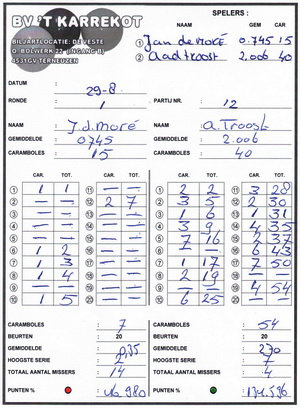 BV 'T KARREKOT
BILJARTLOCATIE: DE VESTE
O. BOLWERK 22 (INGANG B)
4531GV TERNEUZEN
SPELERS :
NAAM GEM CAR
① Jan de Moré 0.745 15
② Aad Troost 2.006 40
DATUM : 29-8.
RONDE : 1 PARTIJ NR. : 12
NAAM : J.d. moré NAAM : a. Troost
GEMIDDELDE : 0.745 GEMIDDELDE : 2.006
CARAMBOLES : 15 CARAMBOLES : 40
CAR. TOT. CAR. TOT. CAR. TOT. CAR. TOT.
① 1 1 ⑪ — — ① 2 2 ⑪ 3 28
② — — ⑫ 2 7 ② 3 5 ⑫ 2 30
③ — — ⑬ — — ③ 1 6 ⑬ 1 31
④ — — ⑭ — — ④ 3 9 ⑭ 4 35
⑤ — — ⑮ — — ⑤ 7 16 ⑮ 2 37
⑥ 1 2 ⑯ — — ⑥ — — ⑯ 6 43
⑦ 1 3 ⑰ — — ⑦ 1 17 ⑰ 7 50
⑧ 1 4 ⑱ — — ⑧ 2 19 ⑱ — —
⑨ — — ⑲ — — ⑨ — — ⑲ 4 54
⑩ 1 5 ⑳ — — ⑩ 6 25 ⑳ — —
CARAMBOLES : 7 CARAMBOLES : 54
BEURTEN : 20 BEURTEN : 20
GEMIDDELDE : 0,35 GEMIDDELDE : 2,70
HOOGSTE SERIE : 2 HOOGSTE SERIE : 7
TOTAAL AANTAL MISSERS : 14 TOTAAL AANTAL MISSERS : 4
PUNTEN % : 46.980 PUNTEN % : 134.596